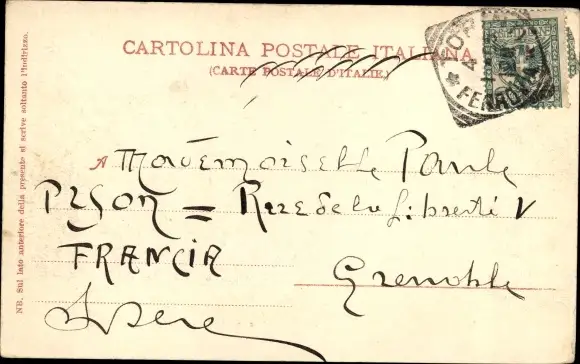 CARTOLINA POSTALE ITALIANA
(CARTE POSTALE D'ITALIE)
FERROVIA
NB. Sul lato anteriore della presente si scrive soltanto l'indirizzo.
A Mademoiselle Paule
PESON = Rue de la Liberté V
FRANCIA
Grenoble
Isère